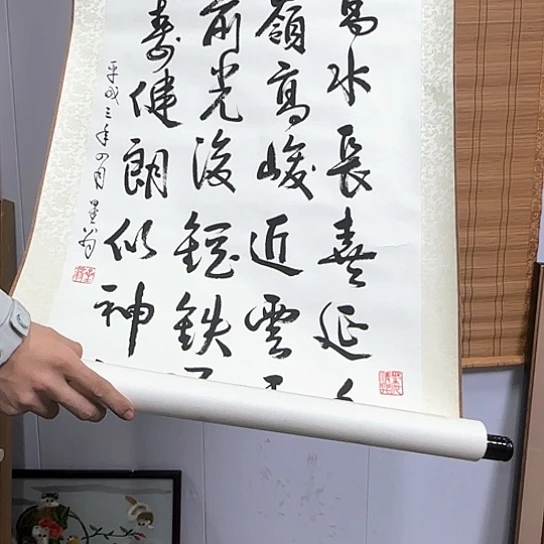 水長喜延
嶺高峻近雲
前光後鋭鉄
壽健朗似神
平成三年四月 星翁